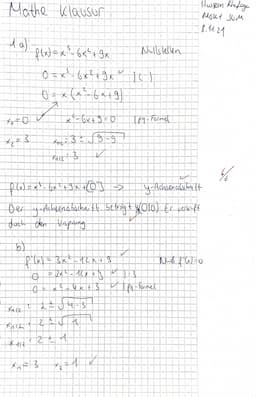 Mathe Klausur
8.11.21
1a)
f(x) = x³ - 6x² + 9x Nullstellen
0 = x³ - 6x² + 9x ✓ | ( )
0 = x (x² - 6x + 9)
x₁ = 0 x² - 6x + 9 = 0 | pq-Formel
x₂ = 3 x₁/₂ = 3 ± √9-9
x₁/₂ = 3 ✓
f(x) = x³ - 6x² + 9x + (0) → y-Achsenabschnitt
Der y-Achsenabschnitt beträgt (0|0). Er verläuft
durch den Ursprung
b)
f'(x) = 3x² - 12x + 9 f'(x) = 0
| :3
0 = x² - 4x + 3 ✓ | pq-Formel
x₁/₂ = 2 ± √4-3
x₁/₂ = 2 ± √1
x₁/₂ = 2 ± 1
x₁ = 3 x₂ = 1 ✓